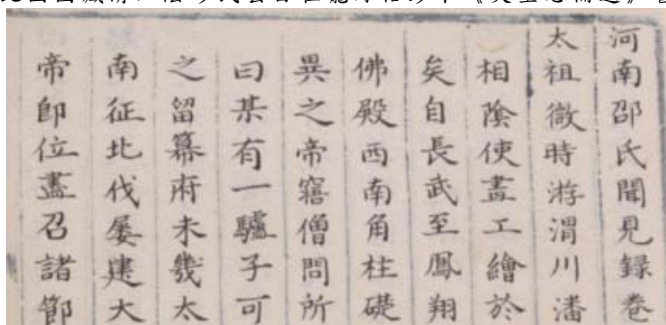 河南邵氏聞見録卷
太祖微時游渭川潘
相陰使畫工繪於
矣自長武至鳳翔
佛殿西南角柱礎
異之帝寤僧問所
曰某有一驢子可
之留幕府未幾太
南征北伐屡建大
帝卽位盡召諸節